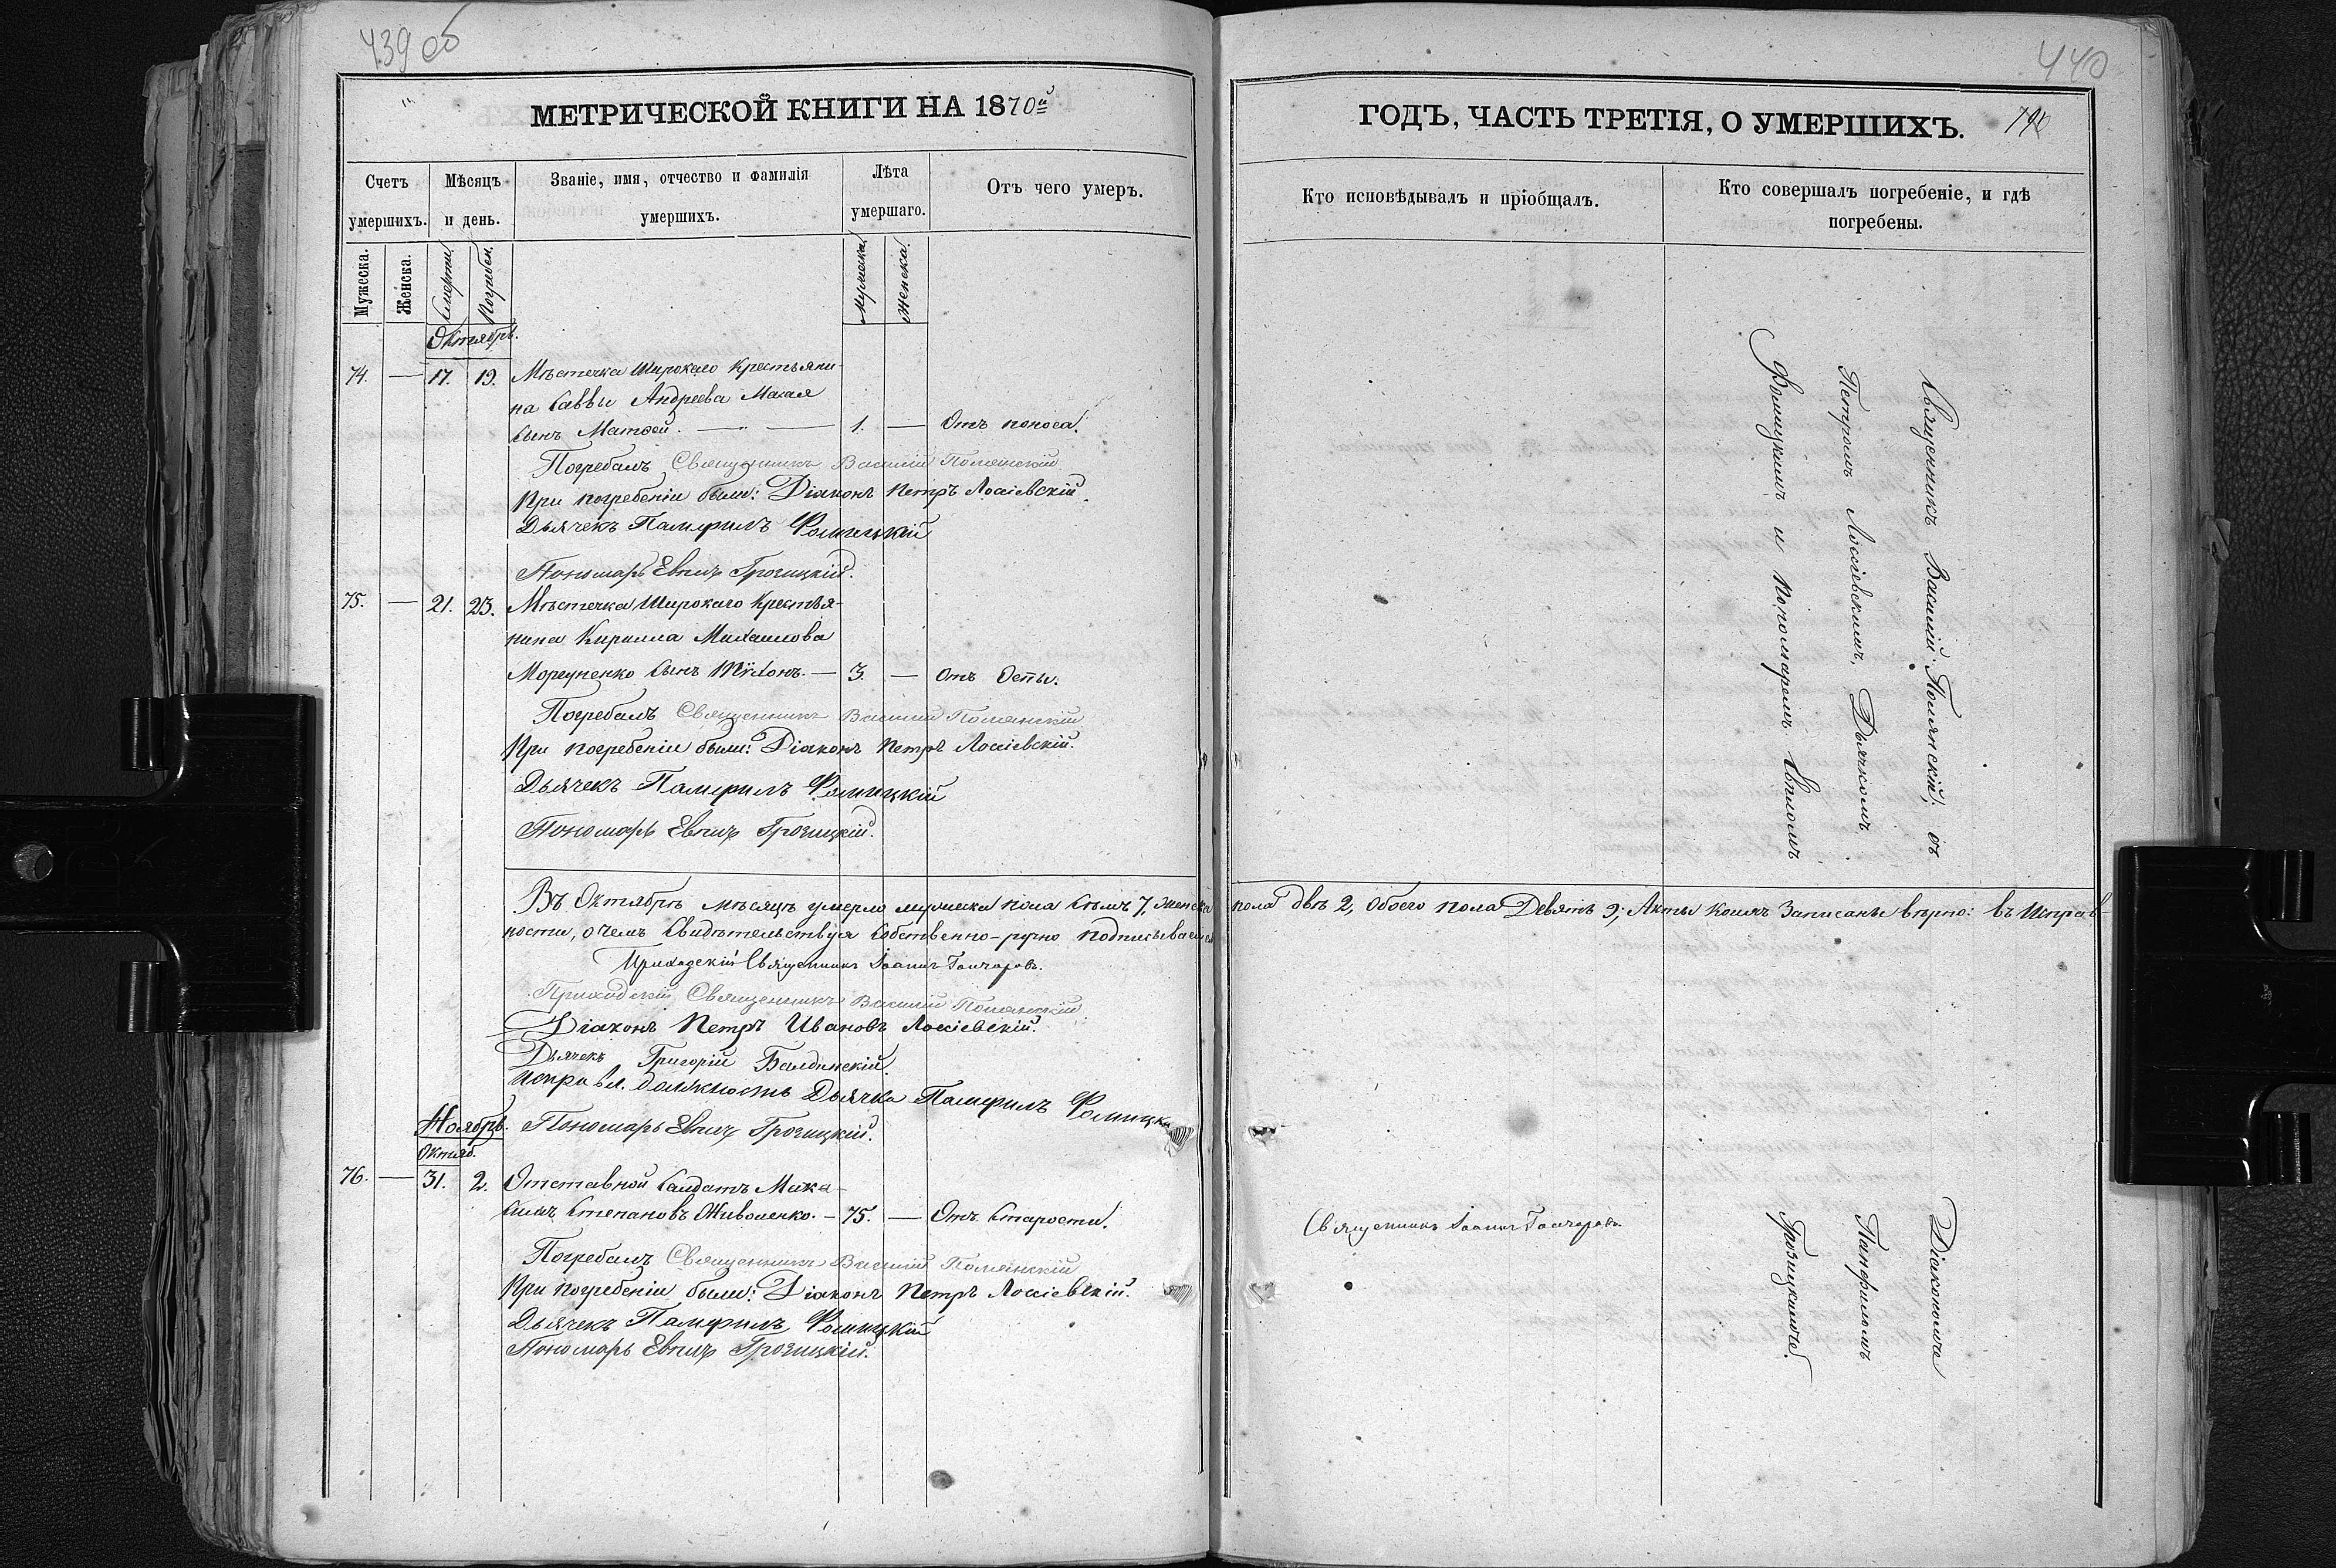 439 об
МЕТРИЧЕСКОЙ КНИГИ НА 1870й
Счетъ умершихъ.
Мѣсяцъ и день.
Званіе, имя, отчество и фамилія умершихъ.
Лѣта умершаго.
Отъ чего умеръ.
Мужеска.
Женска.
Смерти
Погребен.
Мужеска
Женска
Октябрь.
74. — 17. 19. Мѣстечка Широкаго Крестьяни-
на Саввы Андреева
сынъ Матѳей. — — 1. — Отъ поноса.
Погребалъ Священникъ Василій Полянскій
При погребеніи были: Діаконъ Петръ Лосіевскій.
Дьячекъ Памфилъ Фомицкій
Пономарь Евѳилъ Грозицкій.
75. — 21. 23. Мѣстечка Широкаго Крестья-
нина Кирилла Михаилова
Моргуненко сынъ Тѵхонъ. — 3. — Отъ Оспы.
Погребалъ Священникъ Василій Полянскій
При погребеніи были: Діаконъ Петръ Лосіевскій.
Дьячекъ Памфилъ Фомицкій
Пономарь Грозицкій.
Въ Октябрѣ мѣсяцѣ умерло мужеска пола семь 7, женска
ности, о чемъ Свидѣтельствуя Собственно-ручно подписываемся
Приходскій Священникъ Іоаннъ Гончаровъ.
Приходскій Священникъ Василій Полянскій
Діаконъ Петръ Ивановъ Лосіевскій.
Дьячекъ Григорій Балдинскій.
Исправл. должность Дьячка Памфилъ Фомицкій
Пономарь Грозицкій.
Ноябрь.
Октяб.
76. — 31. 2. Отставной Салдатъ Мака-
Степановъ Живоленко. — 75. — Отъ Старости.
Погребалъ Священникъ Василій Полянскій
При погребеніи были: Діаконъ Петръ Лосіевскій.
Дьячекъ Памфилъ Фомицкій
Пономарь Грозицкій.
440
ГОДЪ, ЧАСТЬ ТРЕТІЯ, О УМЕРШИХЪ.
Кто исповѣдывалъ и пріобщалъ.
Кто совершалъ погребеніе, и гдѣ
погребены.
Священникъ Василій Полянскій, съ
Петромъ Лосіевскимъ, Дьячкомъ
Фомицкимъ и Пономаремъ
пола двѣ 2, Обоего пола Девять 9; Акты коихъ Записаны вѣрно: въ Исправ-
Священникъ Іоаннъ Гончаровъ.
Діакономъ
Памфиломъ
Грозицкимъ.